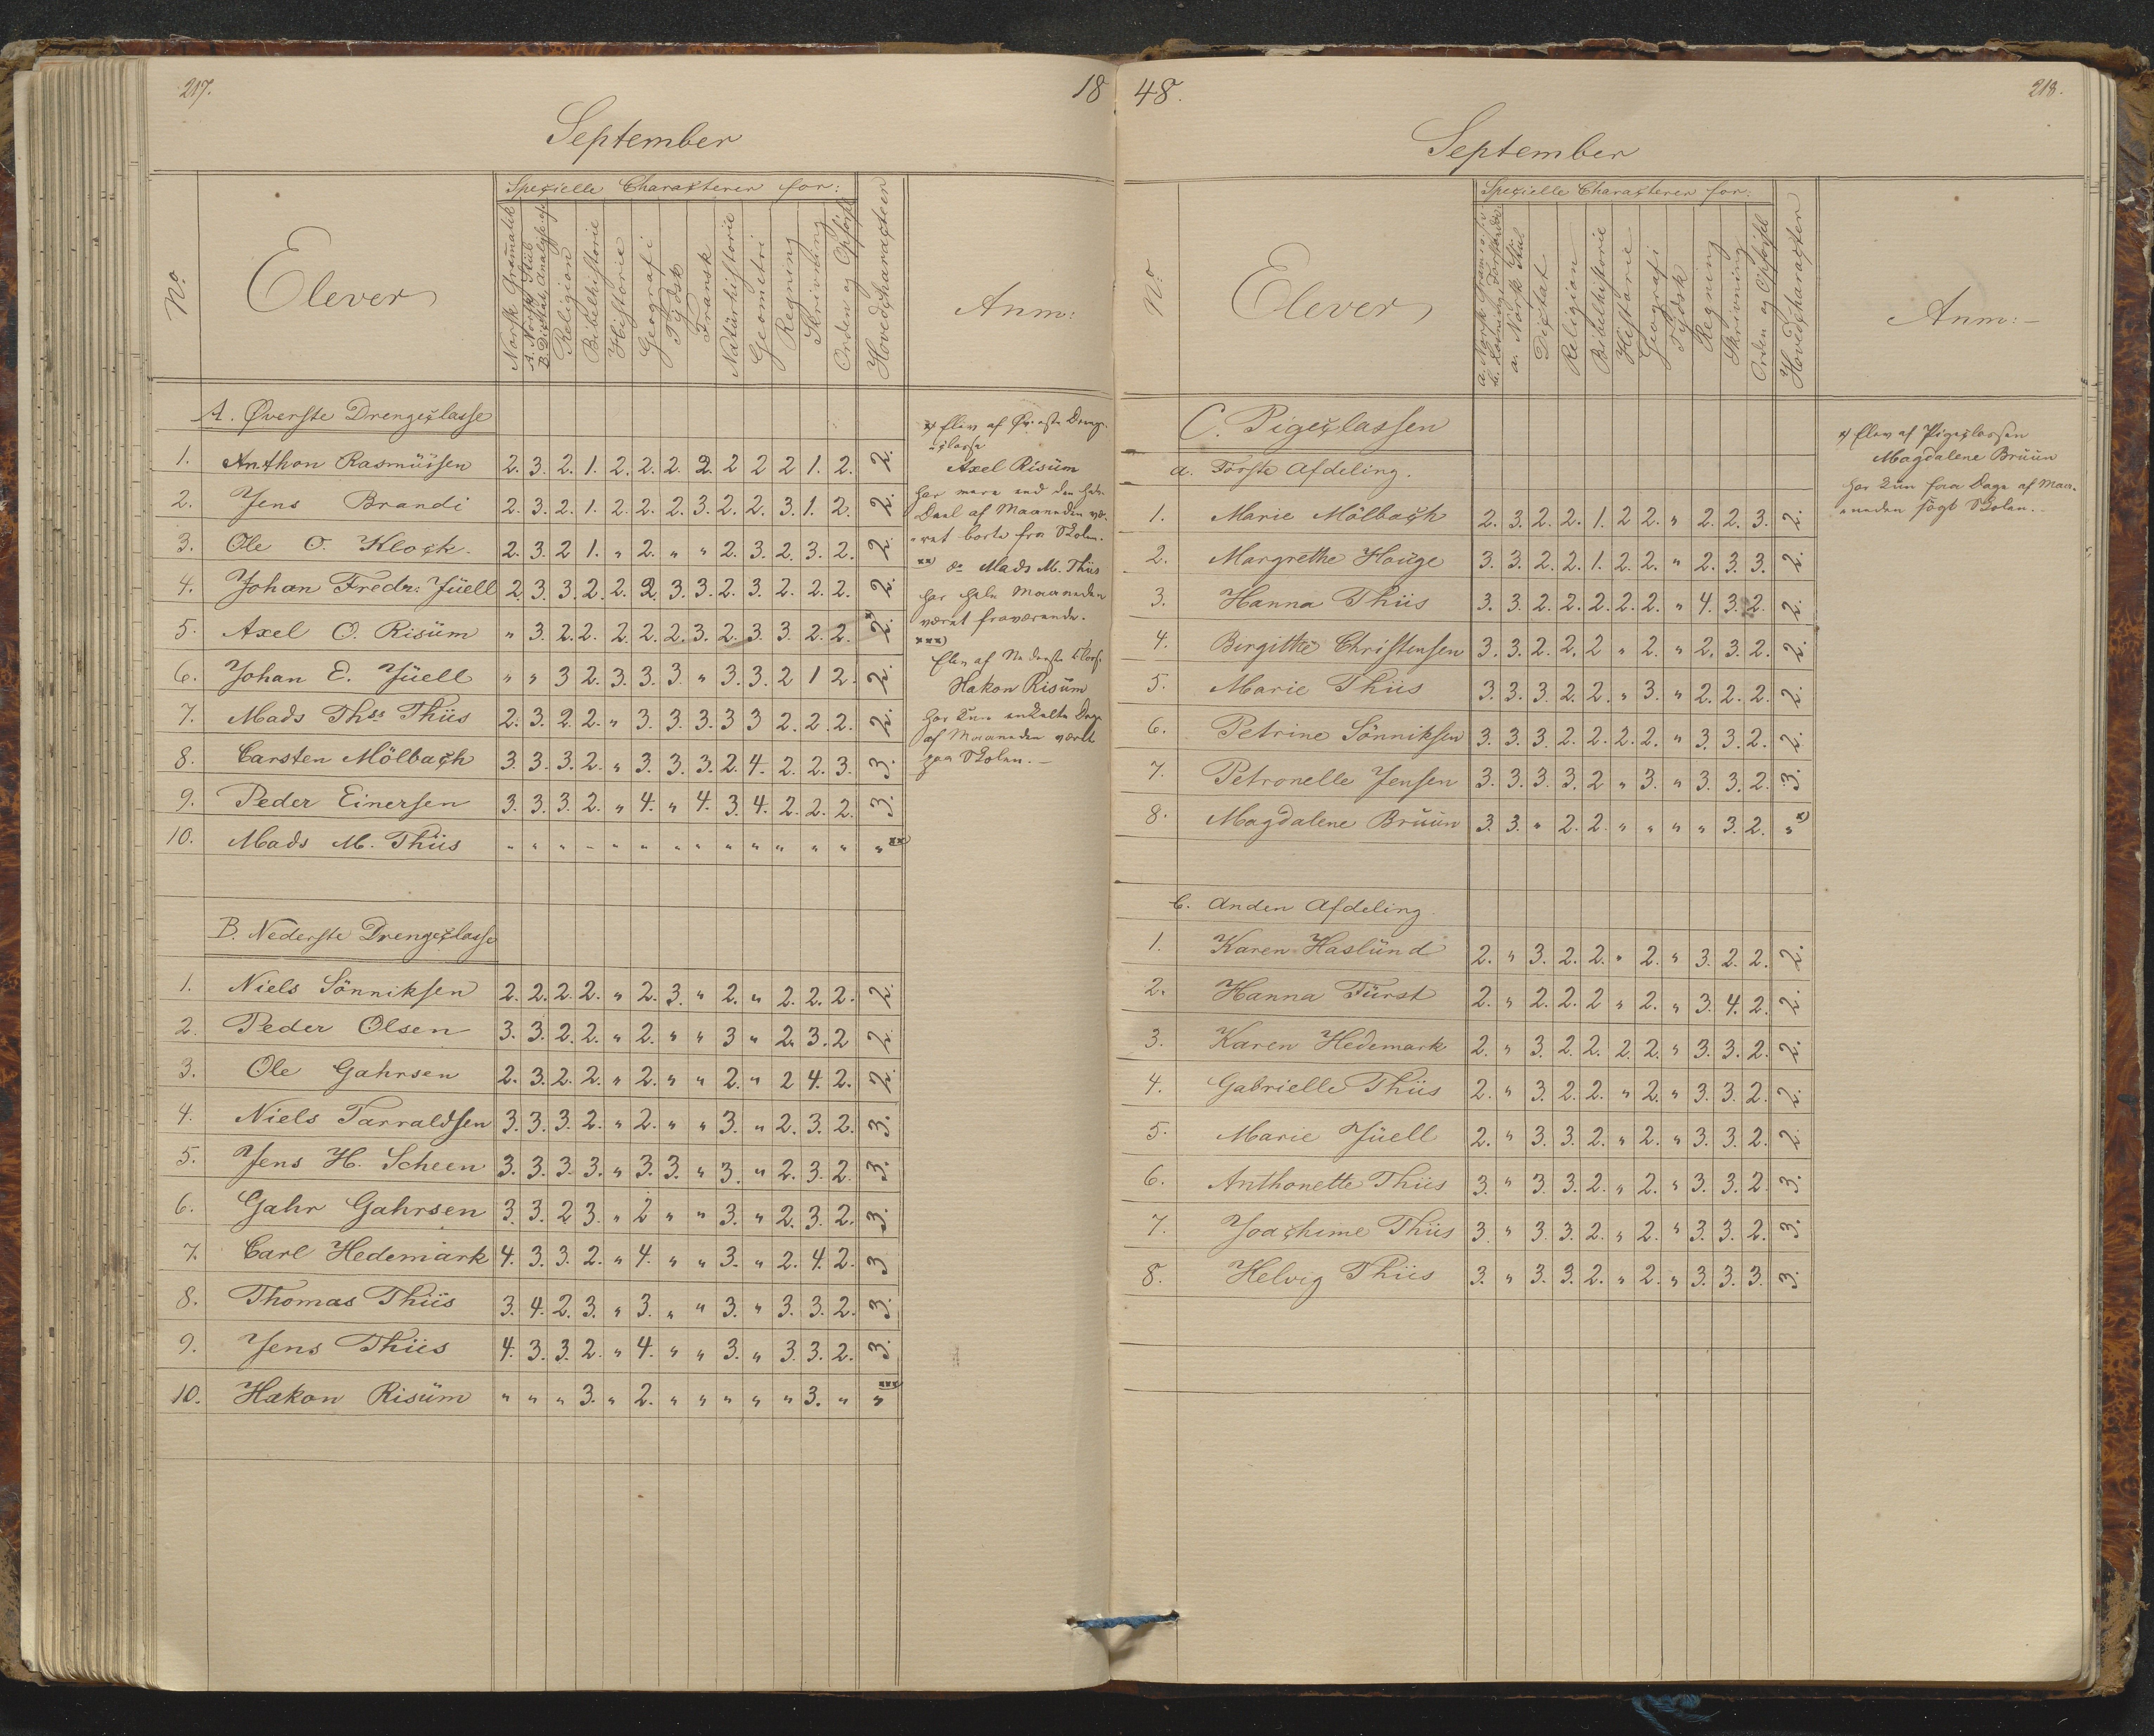 217.
18
September
Specielle Characterer for:
No.
Elever
Norsk Gramatik
A. Norsk Stiil
B. Dictat, Analyse
Religion
Bibelhistorie
Historie
Geografi
Tydsk
Fransk
Natürhistorie
Geometri
Regning
Skrivning
Orden og Opförsel
Hovedcharacteer
Anm:
A. Øverste Drengeclasse
1. Anthon Rasmüssen 2. 3. 2. 1. 2. 2. 2. 2. 2 2 2 1. 2. 2.
2. Jens Brandi 2. 3. 2. 1. 2. 2. 2. 3. 2. 2. 3. 1. 2. 2.
3. Ole O. Klock. 2. 3. 2 1. " 2. " " 2. 3. 2. 3. 2. 2.
4. Johan Fredr: Jüell 2. 3. 3. 2. 2. 2. 3. 3. 2. 3. 2. 2. 2. 2.
5. Axel O. Risüm " 3. 2. 2. 2. 2. 2. 3. 2. 3. 3. 2. 2. 2. x)
6. Johan E. Jüell " " 3 2. 3. 3. 3. " 3. 3. 2 1 2. 2.
7. Mads Thss Thiis 2. 3. 2. 2. " 3. 3. 3. 3 3 2. 2. 2. 2.
8. Carsten Mölbach 3. 3. 3. 2. " 3. 3. 3. 2. 4. 2. 2. 3. 3.
9. Peder Einersen 3. 3. 3. 2. " 4. " 4. 3. 4. 2. 2. 2. 3.
10. Mads M. Thiis " " " " " " " " " " " " " " xx)
B. Nederste Drengeclasse
1. Niels Sönniksen 2. 2. 2. 2. " 2. 3. " 2. " 2. 2. 2. 2.
2. Peder Olsen 3. 3. 2. 2. " 2. " " 3 " 2. 3. 2 2.
3. Ole Gahrsen 2. 3. 2. 2. " 2. " " 2. " 2 4. 2. 2.
4. Niels Tarraldsen 3. 3. 3. 2. " 2. " " 3. " 2. 3. 2. 3.
5. Jens H. Scheen 3. 3. 3. 3. " 3. 3. " 3. " 2. 3. 2. 3.
6. Gahr Gahrsen 3. 3. 2 3. " 2 " " 3. " 2. 3. 2. 3.
7. Carl Hedemark 4. 3. 3. 2. " 4. " " 3. " 2. 4. 2. 3
8. Thomas Thiis 3. 4. 2. 3. " 3. " " 3. " 3. 3. 2. 3.
9. Jens Thiis 4. 3. 3. 2. " 4. " " 3. " 3. 3. 2. 3.
10. Hakon Risüm " " " 3. " 2. " " " " " 3. " " xxx)
x) Elev af Øverste Drenge-
-classe
Axel Risüm
har mere end den halve
Deel af Maaneden væ-
-ret borte fra Skolen.
xx) do Mads M. Thiis
har hele Maaneden
været fraværende.
xxx)
Elev af Nederste Classe
Hakon Risüm
har kun enkelte Dage
af Maaneden været
paa Skolen. –
48.
218.
September
Specielle Characterer for:
No.
Elever
a. Norsk Gramatik
b. Læsning
a. Norsk Stiil
Dictat
Religion
Bibelhistorie
Historie
Geografi
Tydsk
Regning
Skrivning
Orden og Opförsel
Hovedcharacteer
Anm: –
C. Pigeclassen
a. Første Afdeling.
1. Marie Mölbach 2. 3. 2. 2. 1. 2 2. " 2. 2. 3. 2.
2. Margrethe Houge 3. 3. 2. 2. 1. 2. 2. " 2. 3. 3. 2.
3. Hanna Thiis 3. 3. 2. 2. 2. 2. 2. " 4. 3. 2. 2.
4. Birgitte Christensen 3. 3. 2. 2. 2 " 2. " 2. 3. 2. 2.
5. Marie Thiis 3. 3. 3. 2. 2. " 3. " 2. 2. 2. 2.
6. Petrine Sönniksen 3. 3. 3. 2. 2. 2. 2. " 3. 3. 2. 2.
7. Petronelle Jensen 3. 3. 3. 3. 2 " 3. " 3. 3. 2. 3.
8. Magdalene Brüün 3. 3. " 2. 2. " " " " 3. 2. " x)
b. Anden Afdeling.
1. Karen Haslünd 2. " 3. 2. 2. " 2. " 3. 2. 2. 2.
2. Hanna Fürst 2. " 2. 2. 2 " 2. " 3. 4. 2. 2.
3. Karen Hedemark 2. " 3. 2. 2. 2. 2. " 3. 3. 2. 2.
4. Gabrielle Thiis 2. " 3. 2. 2. " 2. " 3. 3. 2. 2.
5. Marie Jüell 2. " 3. 3. 2. " 2. " 3. 3. 2. 2.
6. Anthonette Thiis 3. " 3. 3. 2. " 2. " 3. 3. 2. 3.
7. Joachime Thiis 3. " 3. 3. 2. " 2. " 3. 3. 2. 3.
8. Helvig Thiis 3. " 3. 3. 2. " 2. " 3. 3. 3. 3.
x) Elev af Pigeclassen
Magdalene Brüün
har kun faa Dage af Maa-
-neden søgt Skolen. –